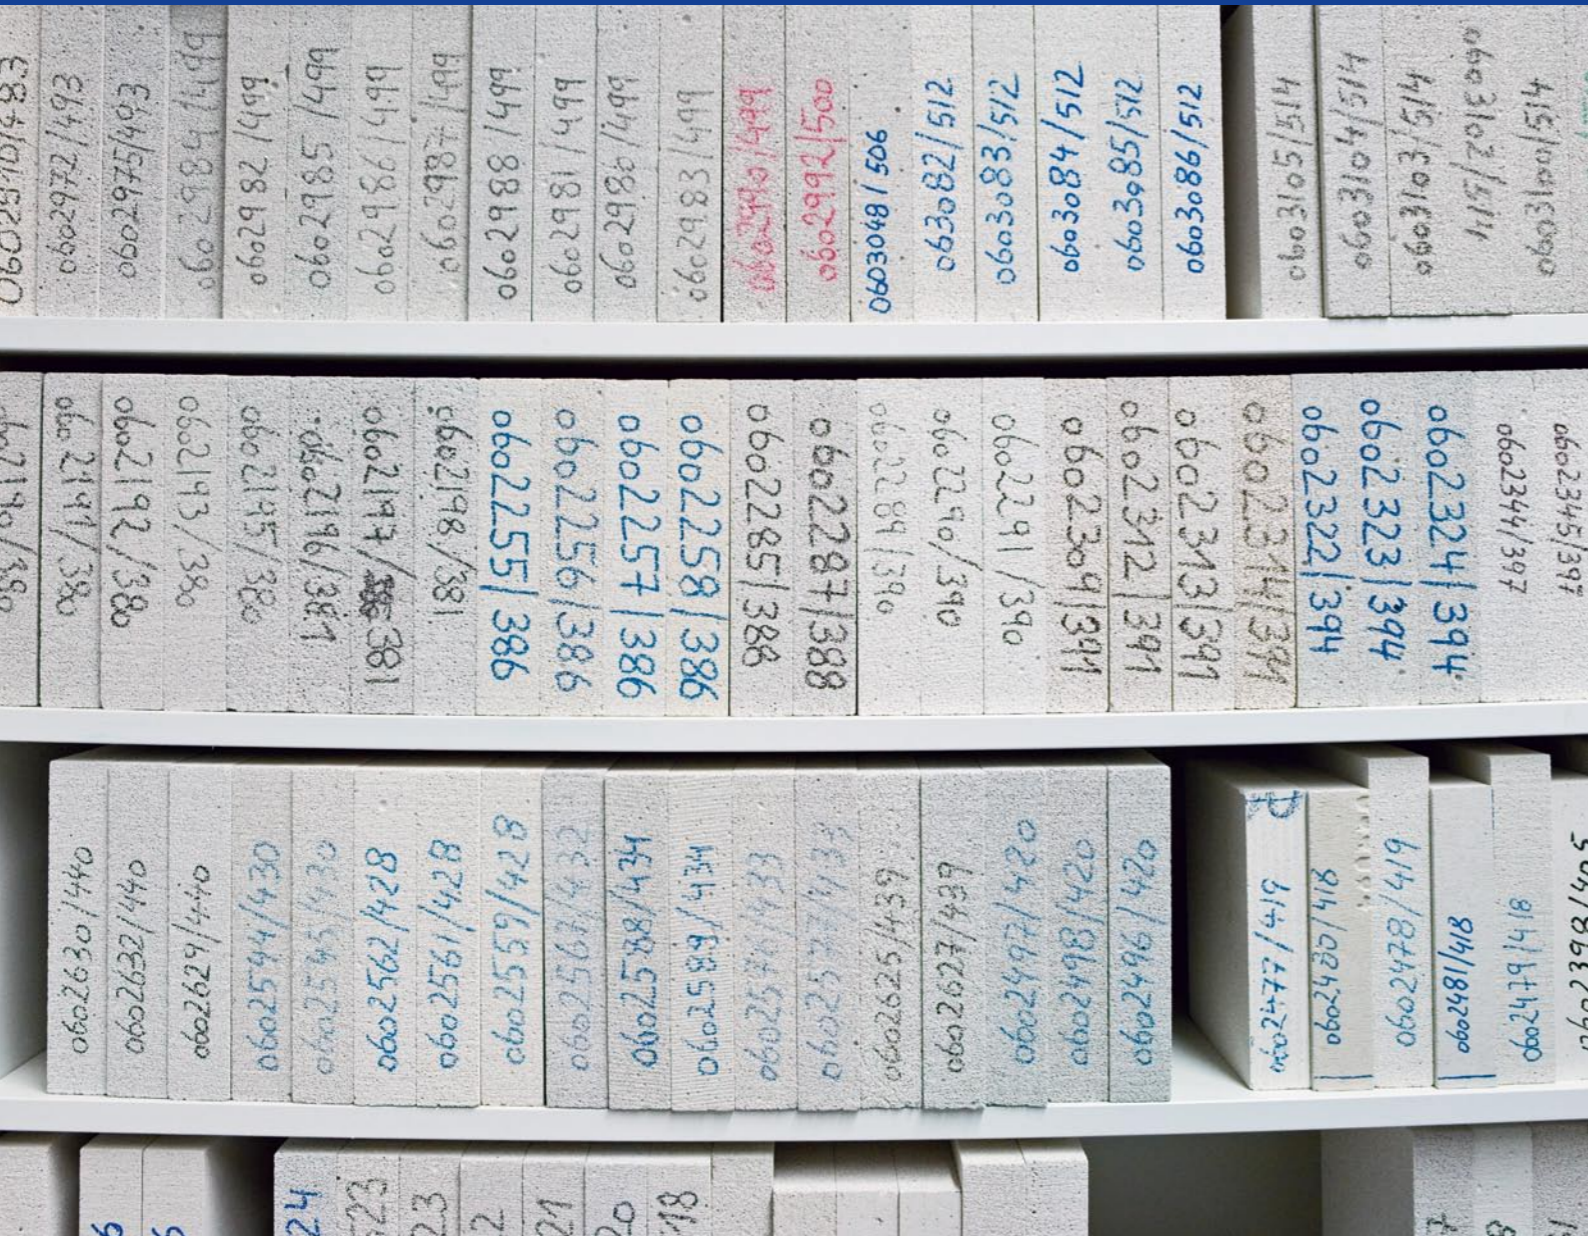 0602972/493
0602975/493
0602984/499
0602982/499
0602985/499
0602986/499
0602987/499
0602988/499
0602981/499
0602980/499
0602983/499
0602990/499
0602992/500
0603048/506
0603082/512
0603083/512
0603084/512
0603085/512
0603086/512
0603105/514
0603104/514
0603103/514
0603102/514
0603100/514
0602191/380
0602192/380
0602193/380
0602195/380
0602196/381
0602197/381
0602198/381
0602255/386
0602256/386
0602257/386
0602258/386
0602285/388
0602287/388
0602289/390
0602290/390
0602291/390
0602309/391
0602312/391
0602313/391
0602314/391
0602322/394
0602323/394
0602324/394
0602344/397
0602345/397
0602630/440
0602632/440
0602629/440
0602544/430
0602545/430
0602562/428
0602561/428
0602559/428
0602567/432
0602588/434
0602589/434
0602574/433
0602573/433
0602625/439
0602627/439
0602497/420
0602498/420
0602496/420
0602477/419
0602480/418
0602478/419
0602481/418
0602479/418
24
23
23
2
21
20
18